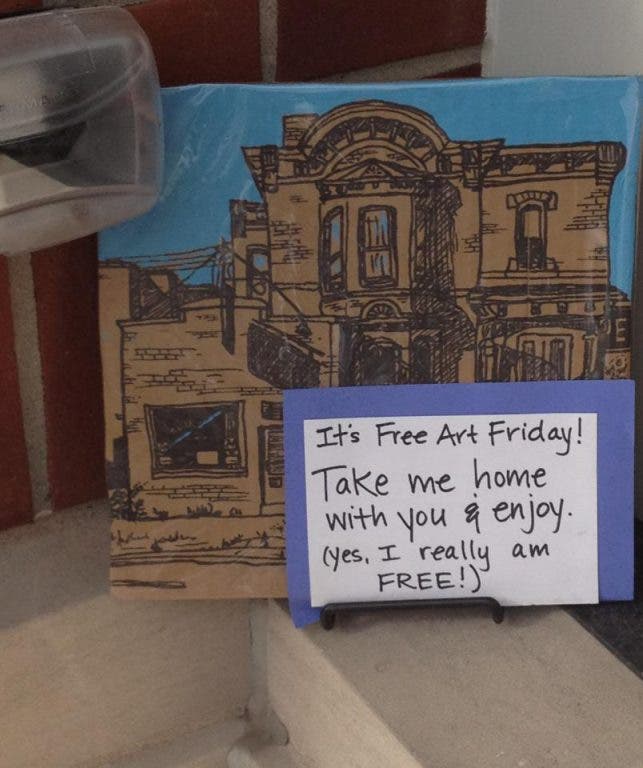 It's Free Art Friday!
Take me home
with you & enjoy.
(yes, I really am
FREE!)
E